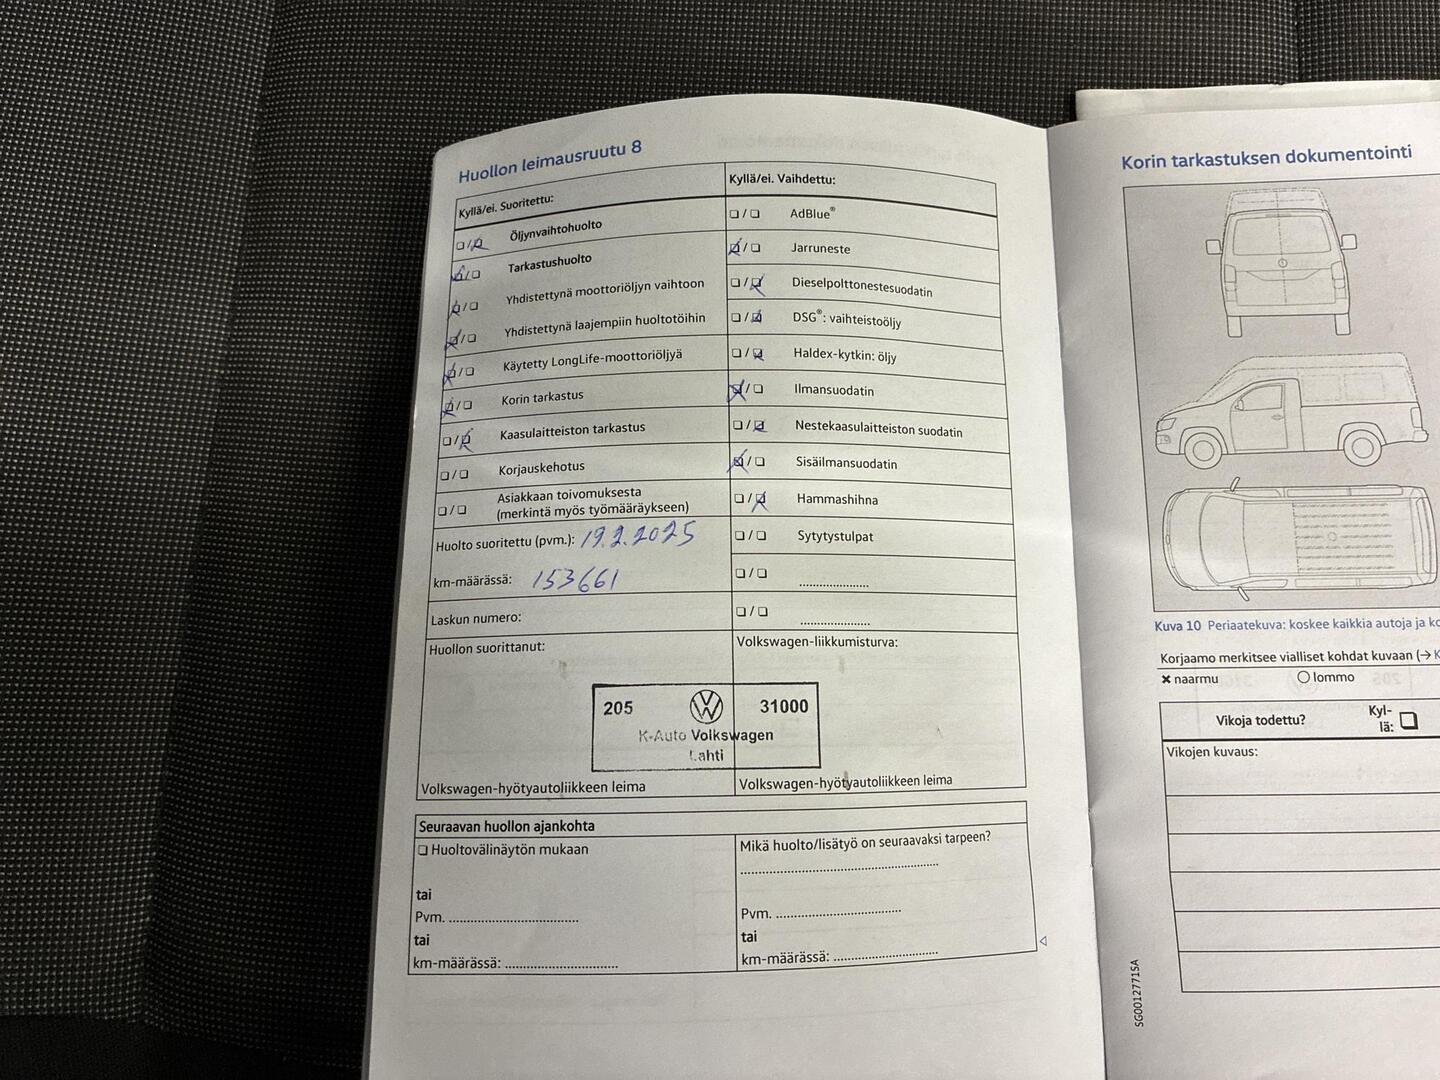 Huollon leimausruutu 8
Kyllä/ei. Suoritettu:
❏/❏ Öljynvaihtohuolto
❏/❏ Tarkastushuolto
❏/❏ Yhdistettynä moottoriöljyn vaihtoon
❏/❏ Yhdistettynä laajempiin huoltotöihin
❏/❏ Käytetty LongLife-moottoriöljyä
❏/❏ Korin tarkastus
❏/❏ Kaasulaitteiston tarkastus
❏/❏ Korjauskehotus
❏/❏ Asiakkaan toivomuksesta
(merkintä myös työmääräykseen)
Huolto suoritettu (pvm.): 19.2.2025
km-määrässä: 153661
Laskun numero:
Huollon suorittanut:
Kyllä/ei. Vaihdettu:
❏/❏ AdBlue®
❏/❏ Jarruneste
❏/❏ Dieselpolttonestesuodatin
❏/❏ DSG®: vaihteistoöljy
❏/❏ Haldex-kytkin: öljy
❏/❏ Ilmansuodatin
❏/❏ Nestekaasulaitteiston suodatin
❏/❏ Sisäilmansuodatin
❏/❏ Hammashihna
❏/❏ Sytytystulpat
❏/❏ ....................
❏/❏ ....................
Volkswagen-liikkumisturva:
205 VW 31000
K-Auto Volkswagen
Lahti
Volkswagen-hyötyautoliikkeen leima
Volkswagen-hyötyautoliikkeen leima
Seuraavan huollon ajankohta
❏ Huoltovälinäytön mukaan
tai
Pvm. ..............................
tai
km-määrässä: ..........................
Mikä huolto/lisätyö on seuraavaksi tarpeen?
..................................................
Pvm. ..............................
tai
km-määrässä: ........................
Korin tarkastuksen dokumentointi
Kuva 10 Periaatekuva: koskee kaikkia autoja ja ko
Korjaamo merkitsee vialliset kohdat kuvaan (→ K
✖ naarmu ○ lommo
Vikoja todettu? Kyl-
lä: ❏
Vikojen kuvaus:
SG0012771SA